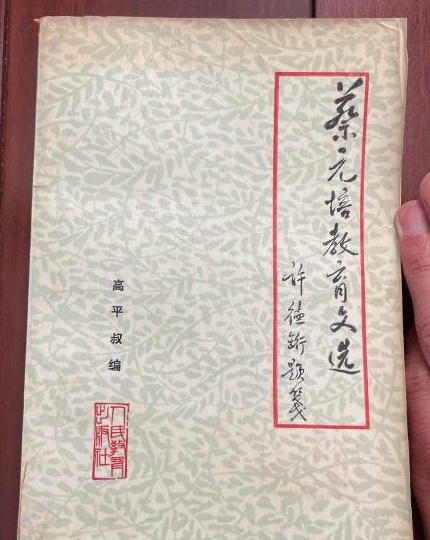 蔡元培教育文选
许德珩题笺
高平叔编
人民教育
出版社